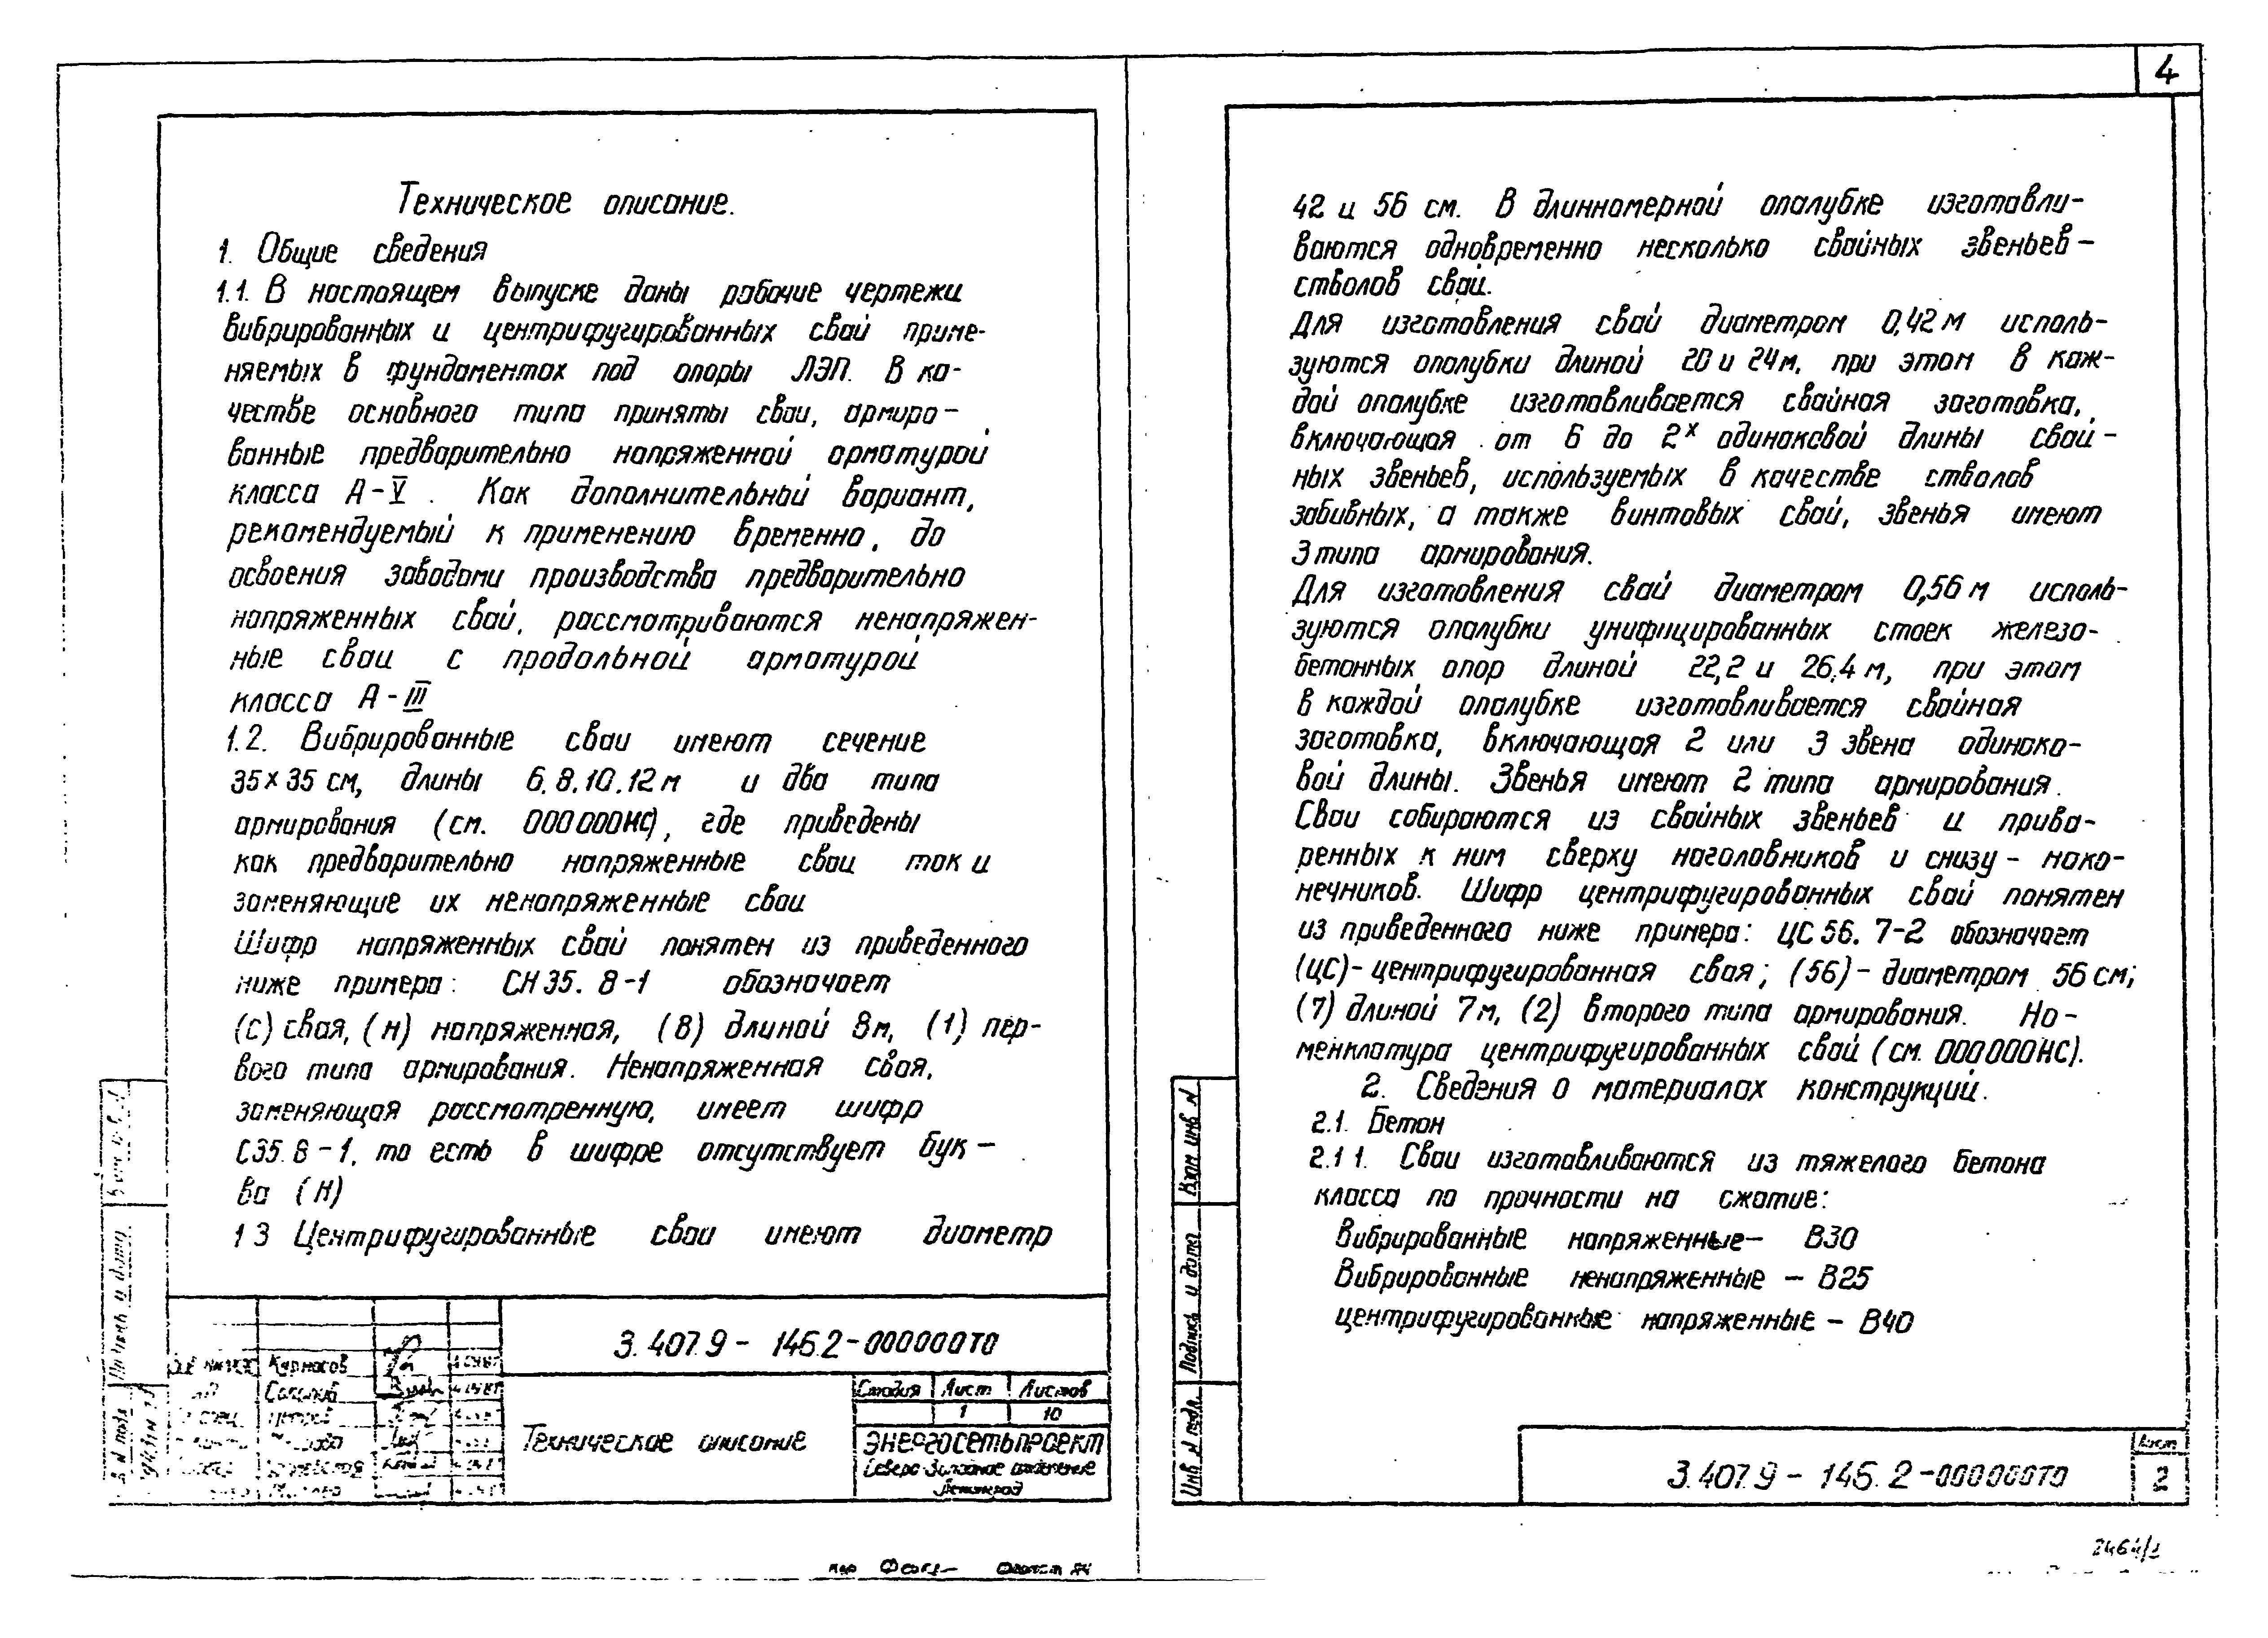 4
Техническое описание.
1. Общие сведения
1.1. В настоящем выпуске даны рабочие чертежи
вибрированных и центрифугированных свай приме-
няемых в фундаментах под опоры ЛЭП. В ка-
честве основного типа приняты сваи, армиро-
ванные предварительно напряженной арматурой
класса А-V. Как дополнительный вариант,
рекомендуемый к применению временно, до
освоения заводами производства предварительно
напряженных свай, рассматриваются ненапряжен-
ные сваи с продольной арматурой
класса А-III
1.2. Вибрированные сваи имеют сечение
35×35 см, длины 6.8.10.12м и два типа
армирования (см. 000000НС), где приведены
как предварительно напряженные сваи так и
заменяющие их ненапряженные сваи
Шифр напряженных свай понятен из приведенного
ниже примера: СН35.8-1 обозначает
(с) свая, (н) напряженная, (8) длиной 8м, (1) пер-
вого типа армирования. Ненапряженная свая,
заменяющая рассмотренную, имеет шифр
С35.8-1, то есть в шифре отсутствует бук-
ва (н)
1 3 Центрифугированные сваи имеют диаметр
3.407.9-146.2-000000ТО
Курносов
Стадия Лист Листов
1 10
Техническое описание
ЭНЕРГОСЕТЬПРОЕКТ
Северо-Западное отделение
Ленинград
Формат А4
42 и 56 см. В длинномерной опалубке изготавли-
ваются одновременно несколько свайных звеньев-
стволов свай.
Для изготовления свай диаметром 0,42м исполь-
зуются опалубки длиной 20 и 24м, при этом в каж-
дой опалубке изготовливается свайная заготовка,
включающая от 6 до 2х одинаковой длины свай-
ных звеньев, используемых в качестве стволов
забивных, а также винтовых свай, звенья имеют
3 типа армирования.
Для изготовления свай диаметром 0,56м исполь-
зуются опалубки унифицированных стоек железо-
бетонных опор длиной 22,2 и 26,4м, при этом
в каждой опалубке изготовливается свайная
заготовка, включающая 2 или 3 звена одинако-
вой длины. Звенья имеют 2 типа армирования.
Сваи собираются из свайных звеньев и прива-
ренных к ним сверху наголовников и снизу - нако-
нечников. Шифр центрифугированных свай понятен
из приведенного ниже примера: ЦС56.7-2 обозначает
(ЦС)-центрифугированная свая; (56)-диаметром 56см;
(7) длиной 7м, (2) второго типа армирования. Но-
менклатура центрифугированных свай (см. 000000НС).
2. Сведения о материалах конструкций.
2.1. Бетон
2.1 1. Сваи изготавливаются из тяжелого бетона
класса по прочности на сжатие:
Вибрированные напряженные- В30
Вибрированные ненапряженные - В25
центрифугированные напряженные - В40
Взам инв N
Подпись и дата
Инв N подл.
3.407.9-146.2-000000ТО
Лист
2